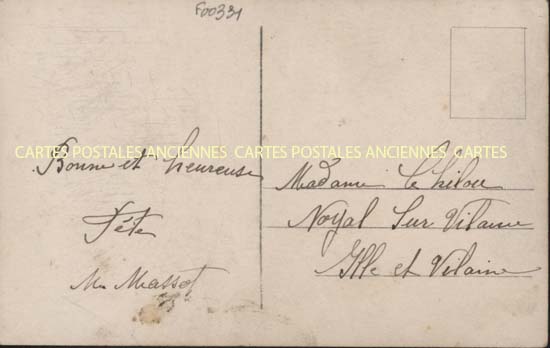 F00331
CARTES POSTALES ANCIENNES CARTES POSTALES ANCIENNES CARTES
Bonne et heureuse
Fête
Massot
Madame
Noyal Sur Vilaine
Ille et Vilaine